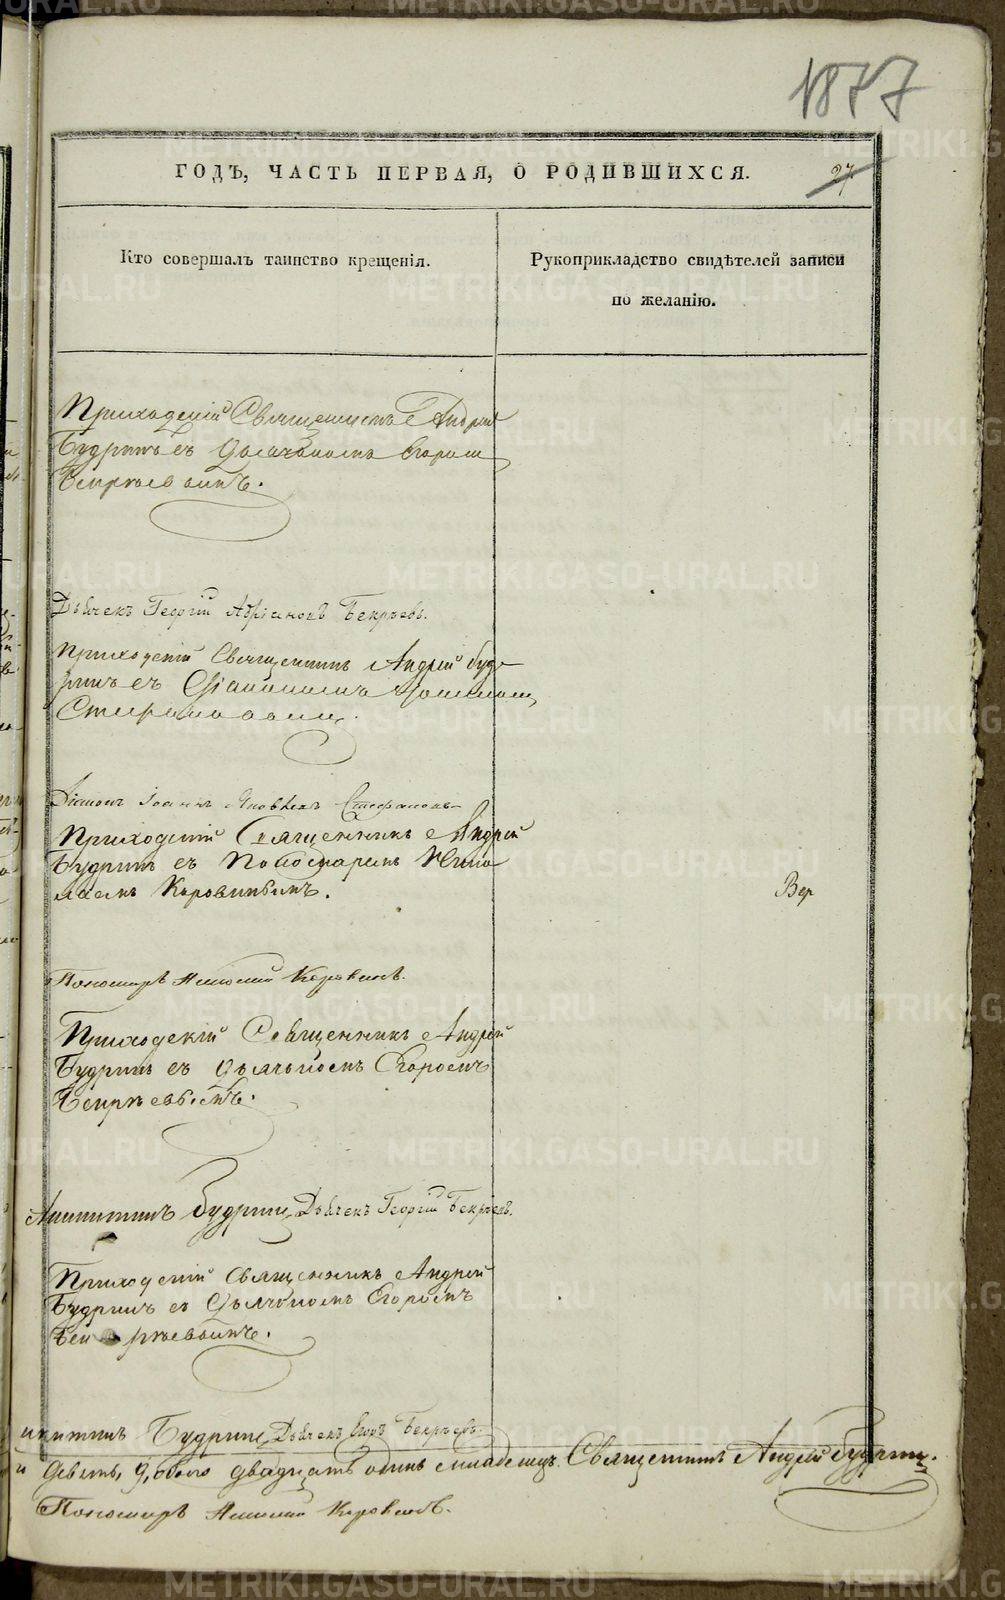 1877
ГОДЪ, ЧАСТЬ ПЕРВАЯ, О РОДИВШИХСЯ.
27.
Кто совершалъ таинство крещенія.
Рукоприкладство свидѣтелей записи
по желанію.
Приходскій Священникъ Андрей
Будринъ съ Дьячкомъ Егоромъ
Бекрѣевымъ.
Дьячекъ Георгій Адріановъ Бекрѣевъ.
Приходскій Священникъ Андрей Буд-
ринъ съ Діакономъ Іоанномъ
Стефановымъ.
Діаконъ Іоаннъ Яковлевъ Стефановъ
Приходскій Священникъ Андрей
Будринъ съ Пономаремъ
Коровинымъ.
Вер
Пономарь Коровинъ.
Приходскій Священникъ Андрей
Будринъ съ Дьячкомъ Егоромъ
Бекрѣевымъ.
Будринъ, Дьячекъ Георгій Бекрѣевъ.
Приходскій Священникъ Андрей
Будринъ съ Дьячкомъ Егоромъ
Бекрѣевымъ.
Будринъ, Дьячекъ Егоръ Бекрѣевъ.
девять, 9, обоего двадцать одинъ младенецъ. Священникъ Андрей Будринъ.
Пономарь Коровинъ.
METRIKI.GASO-URAL.RU